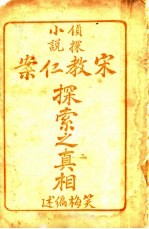 偵探
小説
宋教仁案
探索之真相
二
笑梅編述